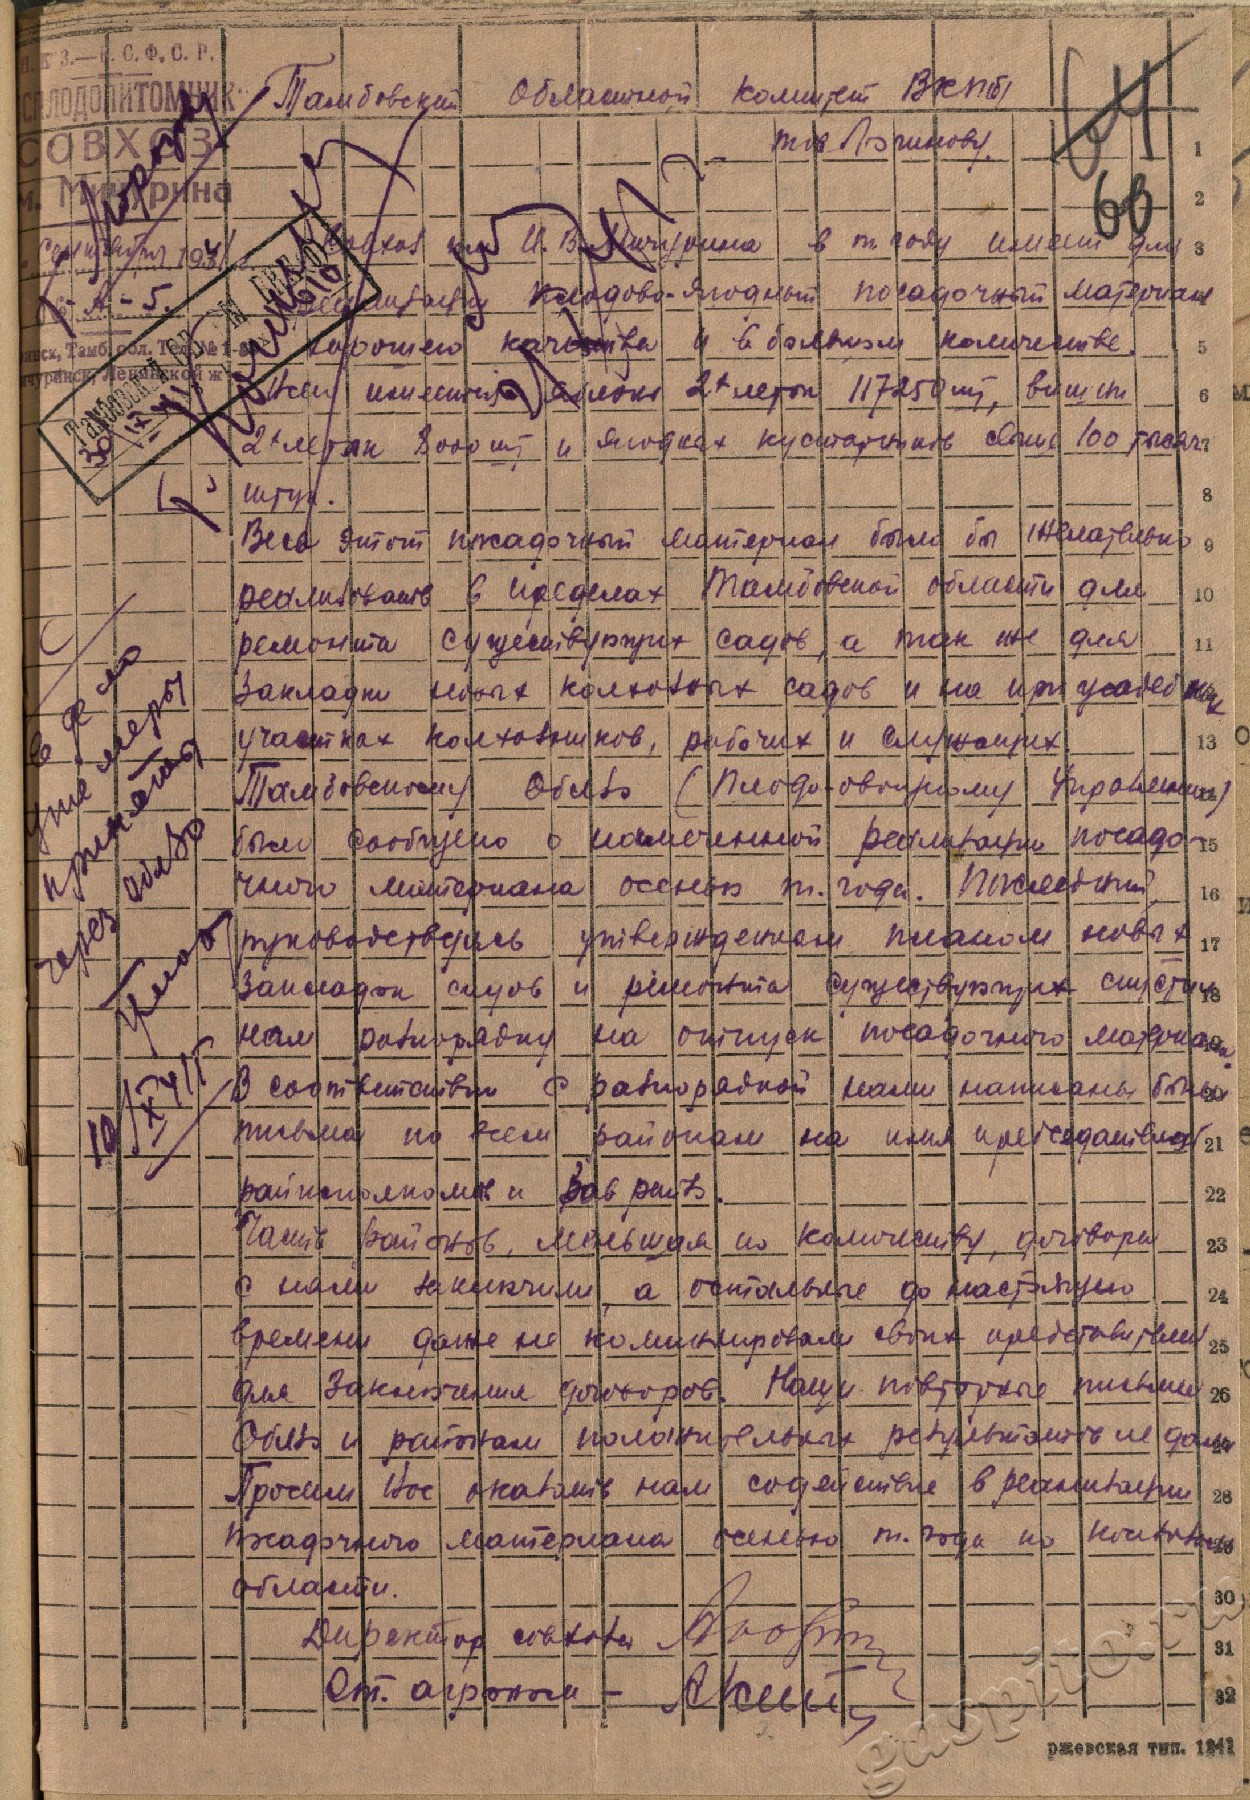 Н. К. З.—Р. С. Ф. С. Р.
ПЛОДОПИТОМНИК
СОВХОЗ
Мичурина
сентября 1941
А - 5.
Тамбовский Областной комитет ВКП(б)
тов. Логинову.
64
66
Совхоз им И. В. Мичурина в т. году имеет для
реализации плодово-ягодный посадочный материал
хорошего качества и в большом количестве.
Всего имеется яблонь 2х леток 117250 шт, вишен
2х леток 8000 шт и ягодных кустарников свыше 100 тысяч
штук.
Весь этот посадочный материал было бы желательно
реализовать в пределах Тамбовской области для
ремонта существующих садов, а так же для
закладки новых колхозных садов и на приусадебных
участках колхозников, рабочих и служащих.
Тамбовскому Облзо (Плодо-овощному Управлению)
было сообщено о намеченной реализации посадо-
чного материала осенью т. года. Последний,
руководствуясь утвержденным планом новых
закладок садов и ремонта существующих спустил
нам разнорядку на отпуск посадочного материала.
В соответствии с разнорядкой нами написаны были
письма по всем районам на имя председателей
райисполкомов и Зав райзо.
Часть районов, меньшая по количеству, договора
с нами заключили, а остальные до настоящего
времени даже не командировали своих представителей
для заключения договоров. Наши повторные письма
Облзо и районам положительных результатов не дали
Просим Вас оказать нам содействие в реализации
посадочного материала осенью т. года по колхозам
области.
Директор совхоза
Ст. агроном -
В дело
уже меры
приняты
через облзо
10/X 41 г
1
2
3
5
6
7
8
9
10
11
13
15
16
17
18
19
20
21
22
23
24
25
26
28
29
30
31
32
ржевская тип. 1241
gaspito.ru